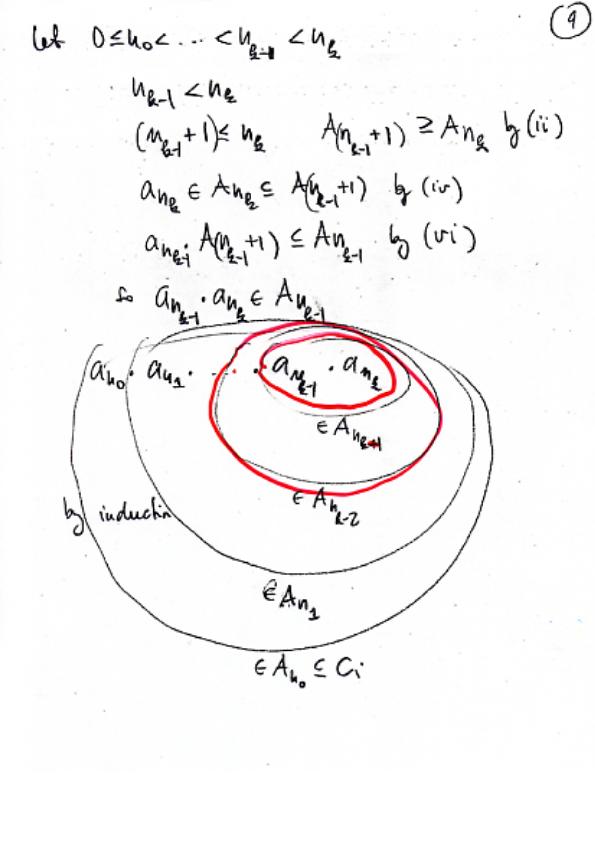 9
Let 0 ≤ n₀ < ... < n_{k-1} < n_k
n_{k-1} < n_k
(n_{k-1} + 1) ≤ n_k A(n_{k-1} + 1) ⊇ A n_k by (ii)
a_{n_k} ∈ A n_k ⊆ A(n_{k-1} + 1) by (iv)
a_{n_{k-1}} · A(n_{k-1} + 1) ⊆ A n_{k-1} by (vi)
so a_{n_{k-1}} · a_{n_k} ∈ A n_{k-1}
a_{n_0} · a_{n_1} · ... · a_{n_{k-1}} · a_{n_k}
∈ A n_{k-1}
∈ A n_{k-2}
by induction
∈ A n_1
∈ A n_0 ⊆ C_i